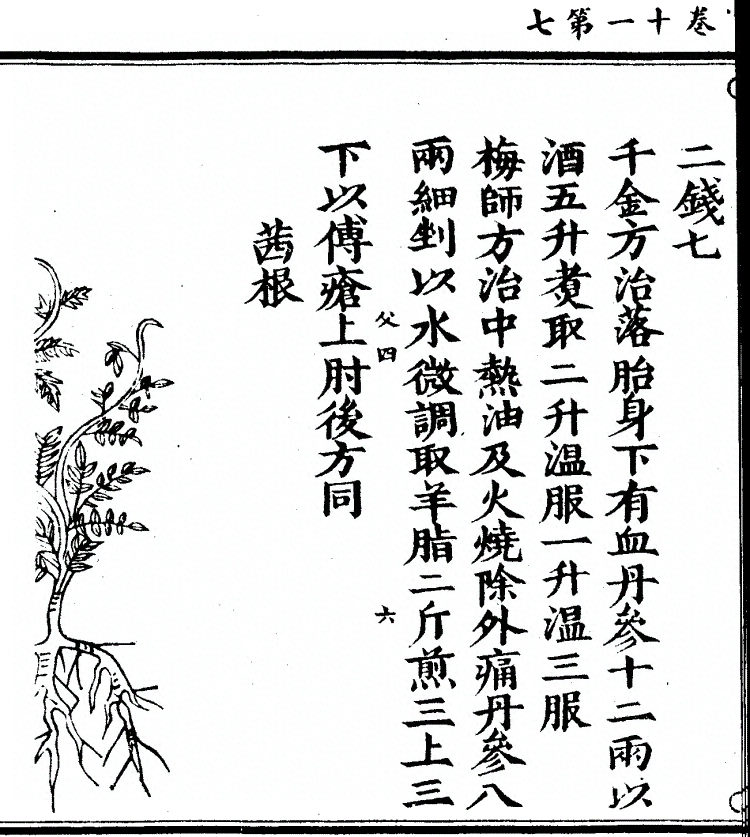 卷十一第七
二錢七
千金方治落胎身下有血丹參十二兩以
酒五升煑取二升温服一升温三服
梅師方治中熱油及火燒除外痛丹參八
兩細剉以水微調取羊脂二斤煎三上三
下以傅瘡上肘後方同
父四
六
茜根